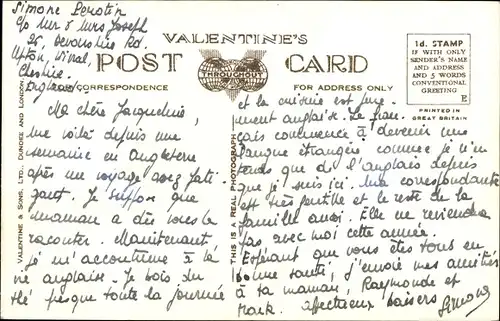 Simone Perotin
c/o Mr & Mrs Joseph
26, Devonshire Rd.
Upton, Wirral,
Cheshire.
England
VALENTINE'S
POST CARD
THROUGHOUT
CORRESPONDENCE
FOR ADDRESS ONLY
1d. STAMP
IF WITH ONLY
SENDER'S NAME
AND ADDRESS
AND 5 WORDS
CONVENTIONAL
GREETING
E
PRINTED IN
GREAT BRITAIN
VALENTINE & SONS, LTD., DUNDEE AND LONDON
THIS IS A REAL PHOTOGRAPH
Ma chère Jacqueline,
me voilà depuis une
semaine en Angleterre
après un voyage assez fati-
gant. Je suppose que
maman a dès vous le
raconter. Maintenant
je m'accoutume à la
vie anglaise. Je bois du
thé presque toute la journée
et la cuisine est pure-
ment anglaise. Le fran-
çais commence à devenir une
langue étrangère comme je n'en-
tends que de l'anglais depuis
que je suis ici. Ma correspondante
est très gentille et le reste de la
famille aussi. Elle ne reviendra
pas avec moi cette année.
Espérant que vous êtes tous en
bonne santé, j'envoie mes amitiés
à ta maman, Raymonde et
affectueux baisers
Simone